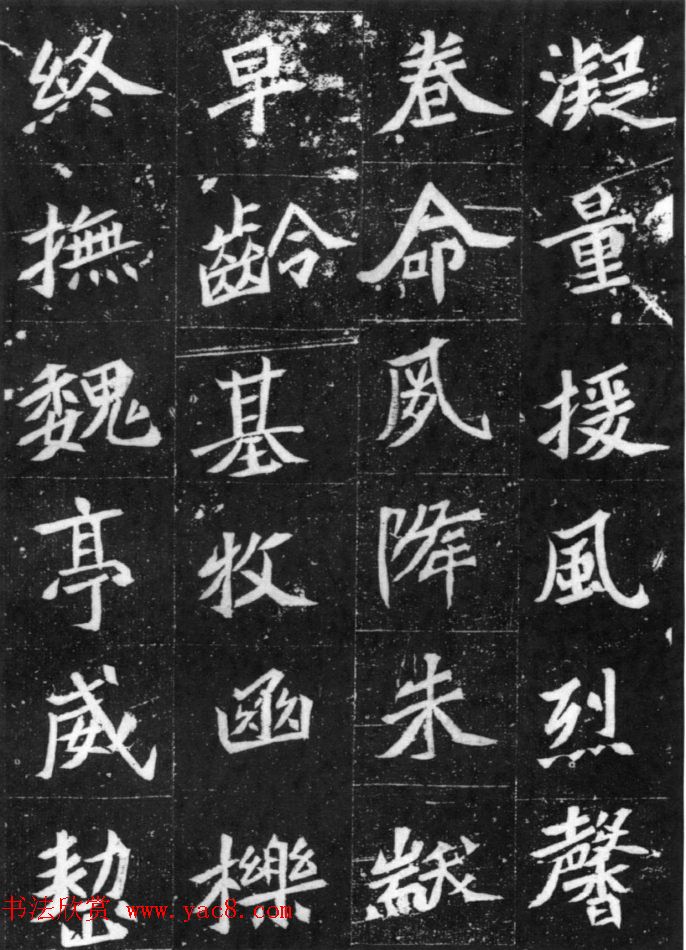 凝量援風烈馨
眷命夙降朱黻
早齡基牧函櫟
終撫魏亭威整
书法欣赏 www.yac8.com